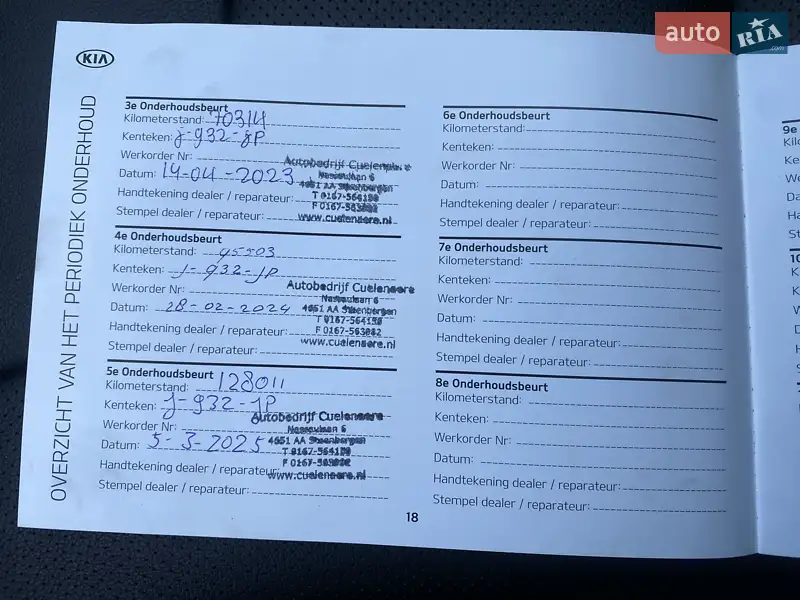 auto RIA .com
KIA
OVERZICHT VAN HET PERIODIEK ONDERHOUD
3e Onderhoudsbeurt
Kilometerstand: 70314
Kenteken: J-932-JP
Werkorder Nr:
Datum: 14-04-2023
Handtekening dealer / reparateur:
Stempel dealer / reparateur:
Autobedrijf Cuelenaere
Nassaulaan 6
4651 AA Steenbergen
T 0167-564150
www.cuelenaere.nl
4e Onderhoudsbeurt
Kilometerstand: 95503
Kenteken: J-932-JP
Werkorder Nr:
Datum: 28-02-2024
Handtekening dealer / reparateur:
Stempel dealer / reparateur:
Autobedrijf Cuelenaere
Nassaulaan 6
4651 AA Steenbergen
T 0167-564150
F 0167-563082
www.cuelenaere.nl
5e Onderhoudsbeurt
Kilometerstand: 128011
Kenteken: J-932-JP
Werkorder Nr:
Datum: 5-3-2025
Handtekening dealer / reparateur:
Stempel dealer / reparateur:
Autobedrijf Cuelenaere
Nassaulaan 6
4651 AA Steenbergen
T 0167-564150
www.cuelenaere.nl
6e Onderhoudsbeurt
Kilometerstand:
Kenteken:
Werkorder Nr:
Datum:
Handtekening dealer / reparateur:
Stempel dealer / reparateur:
7e Onderhoudsbeurt
Kilometerstand:
Kenteken:
Werkorder Nr:
Datum:
Handtekening dealer / reparateur:
Stempel dealer / reparateur:
8e Onderhoudsbeurt
Kilometerstand:
Kenteken:
Werkorder Nr:
Datum:
Handtekening dealer / reparateur:
Stempel dealer / reparateur:
18
9e